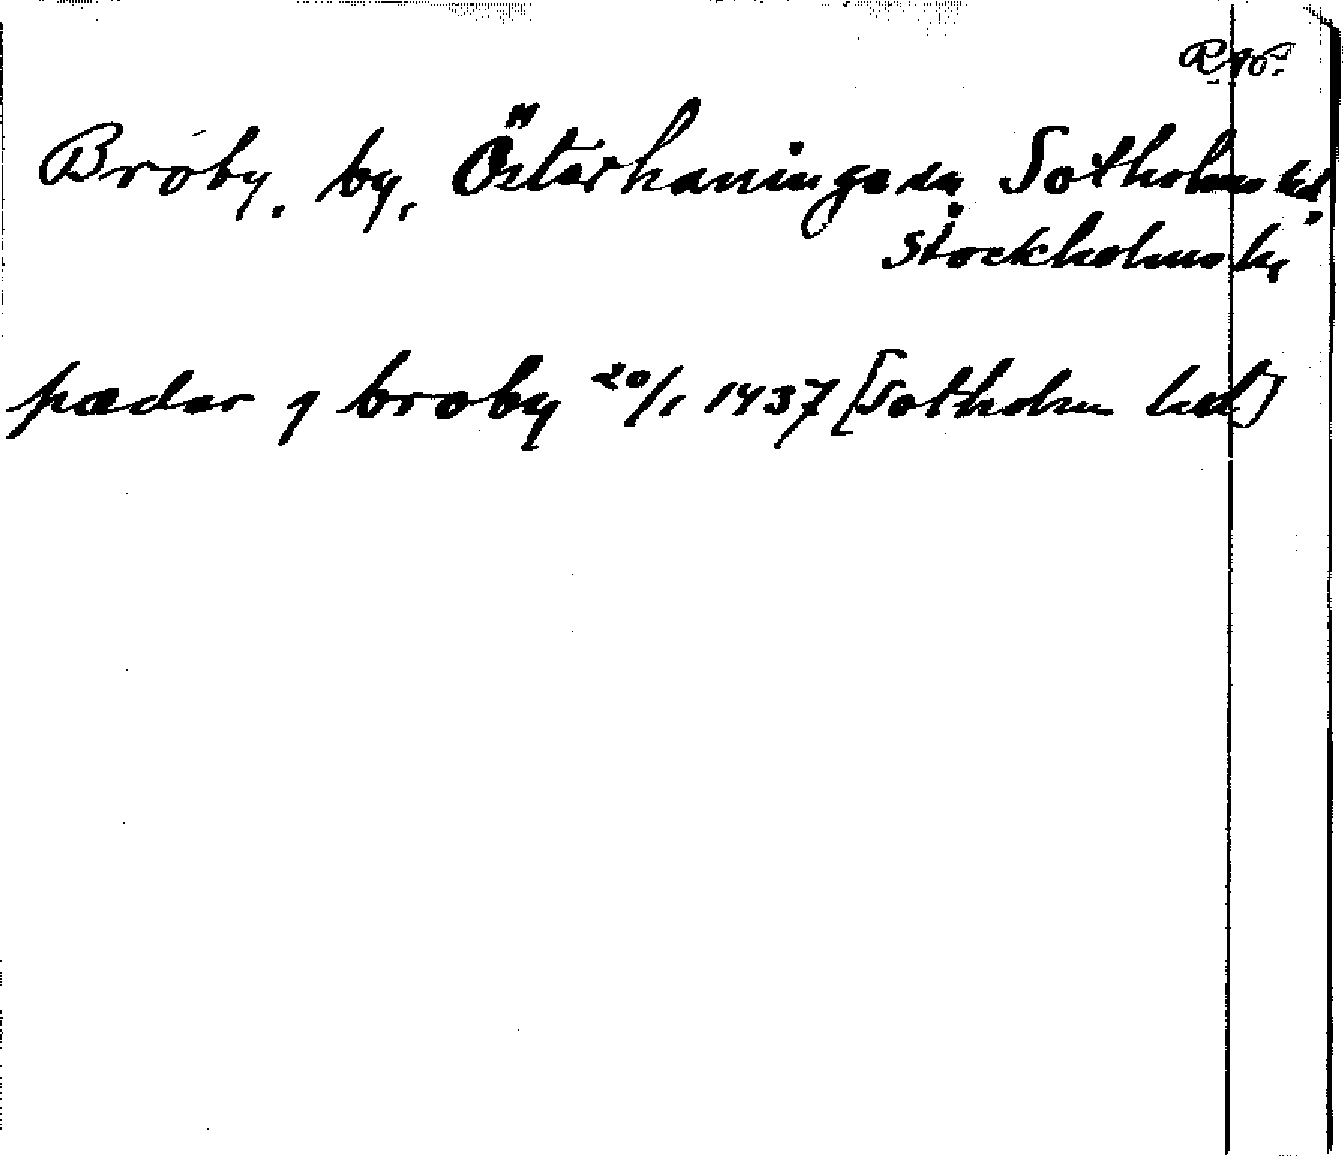 Broby, by, Österhaninge sn Sotholms hd.
Stockholms l.
pædar j broby 20/1 1437 [Sotholm hd]